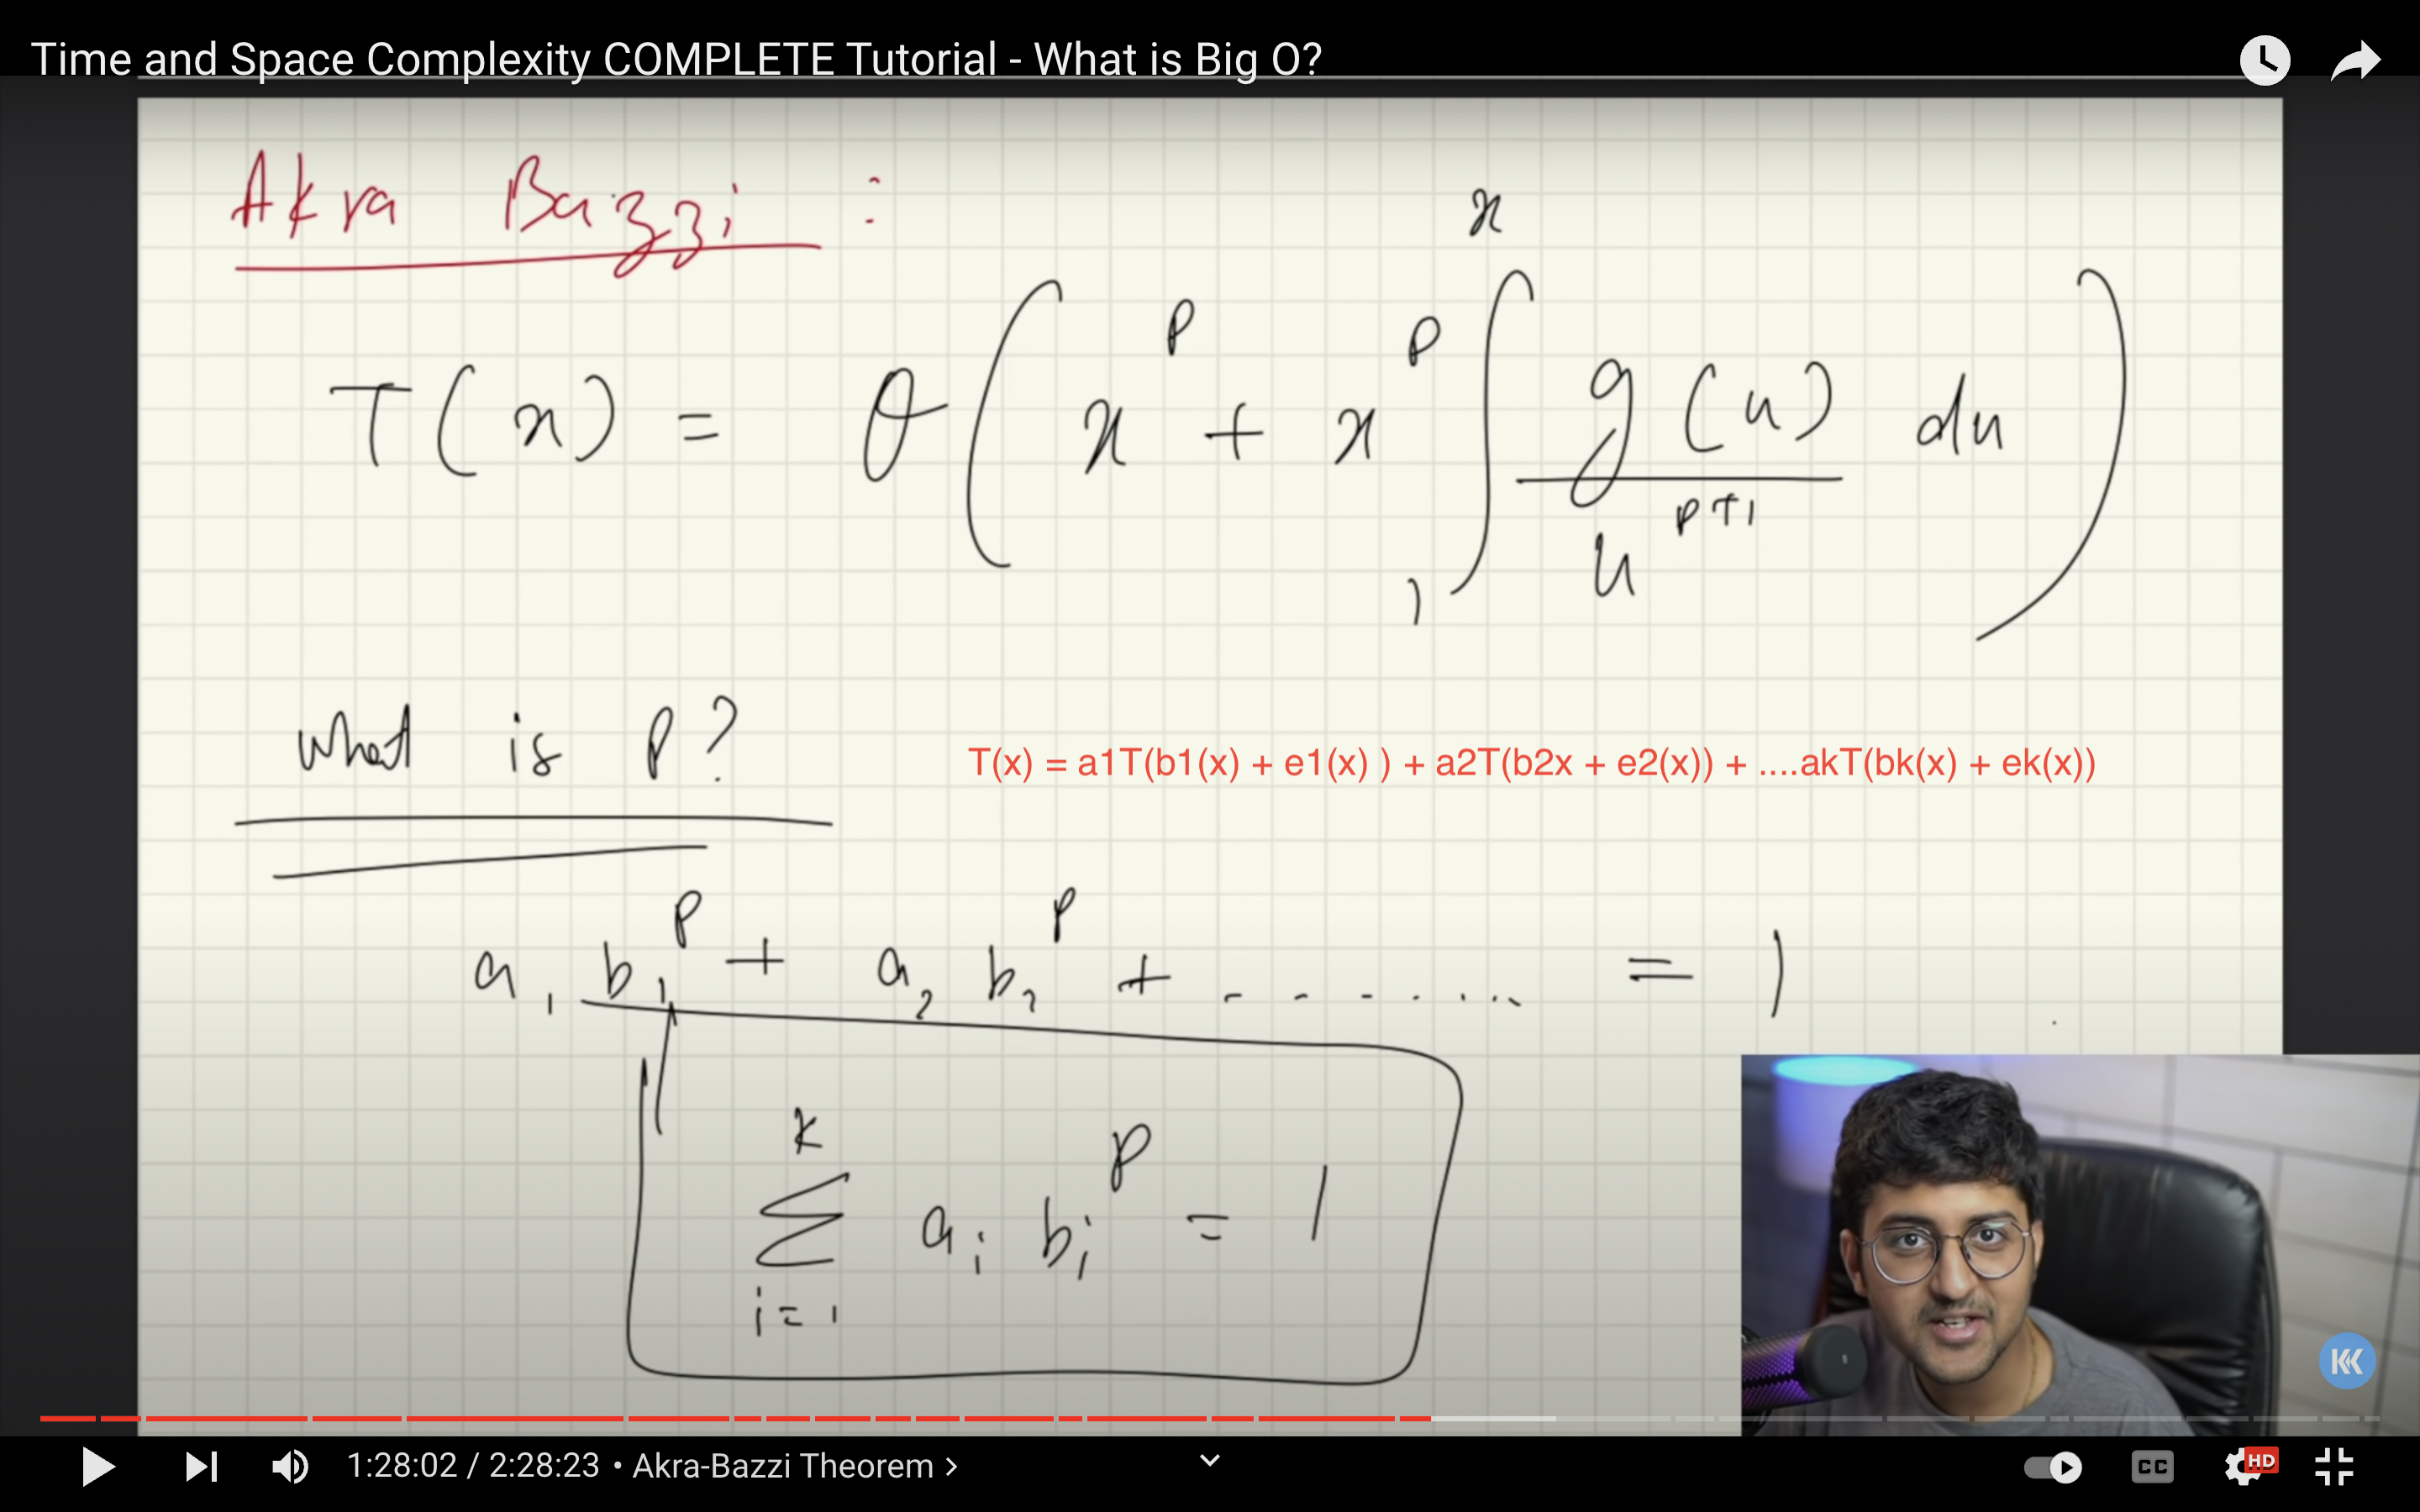 Time and Space Complexity COMPLETE Tutorial - What is Big O?
Akra Bazzi :
T(x) = θ( x^p + x^p ∫_1^x g(u) / u^(p+1) du )
what is p?
T(x) = a1T(b1(x) + e1(x) ) + a2T(b2x + e2(x)) + ....akT(bk(x) + ek(x))
a₁ b₁^p + a₂ b₂^p + ........ = 1
∑_(i=1)^k aᵢ bᵢ^p = 1
KK
1:28:02 / 2:28:23 • Akra-Bazzi Theorem >
CC
HD